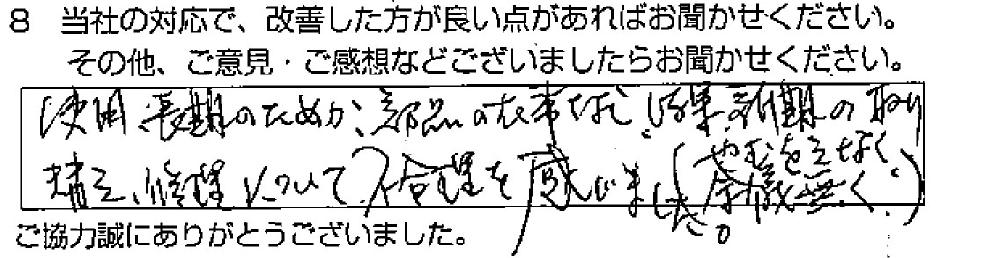 8 当社の対応で、改善した方が良い点があればお聞かせください。
その他、ご意見・ご感想などございましたらお聞かせください。
使用長期のためか、部品の在庫なし。の取り
替え、修理について不合理を感じました。(やむをえなく
無く。)
ご協力誠にありがとうございました。